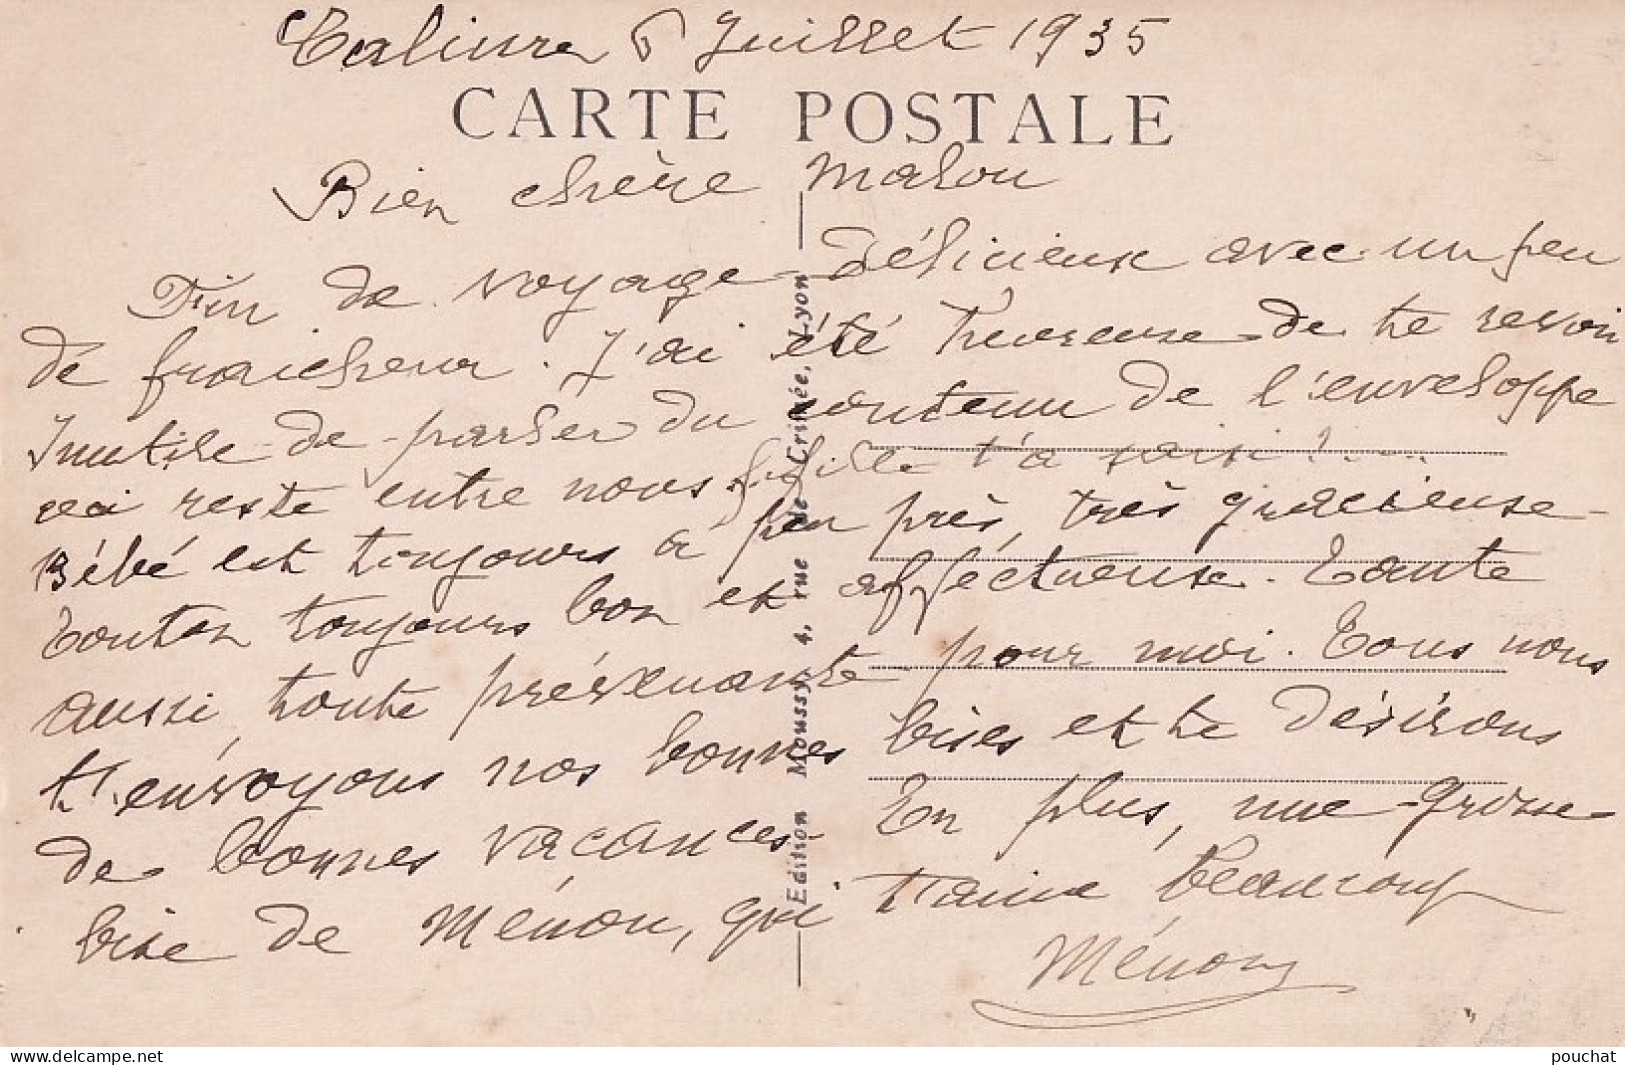 Juillet 1935
CARTE POSTALE
Bien chère Malou
Fin de voyage délicieuse avec un peu
de fraicheur. J'ai été heureuse de te revoir
Inutile de parler du contenu de l'enveloppe
reste entre nous fifille t'a saisi?....
Bébé est toujours à peu près, très gracieuse
Tonton toujours bon et afféctueuse. Tante
aussi, toute prévenante pour moi. Tous nous
t'envoyons nos bonnes bises et te désirons
de bonnes vacances. En plus, une grosse
bise de Ménou, qui t'aime beaucoup
Ménou
Edition Moussy, 4, rue de Crimée, Lyon
pouchat
www.delcampe.net